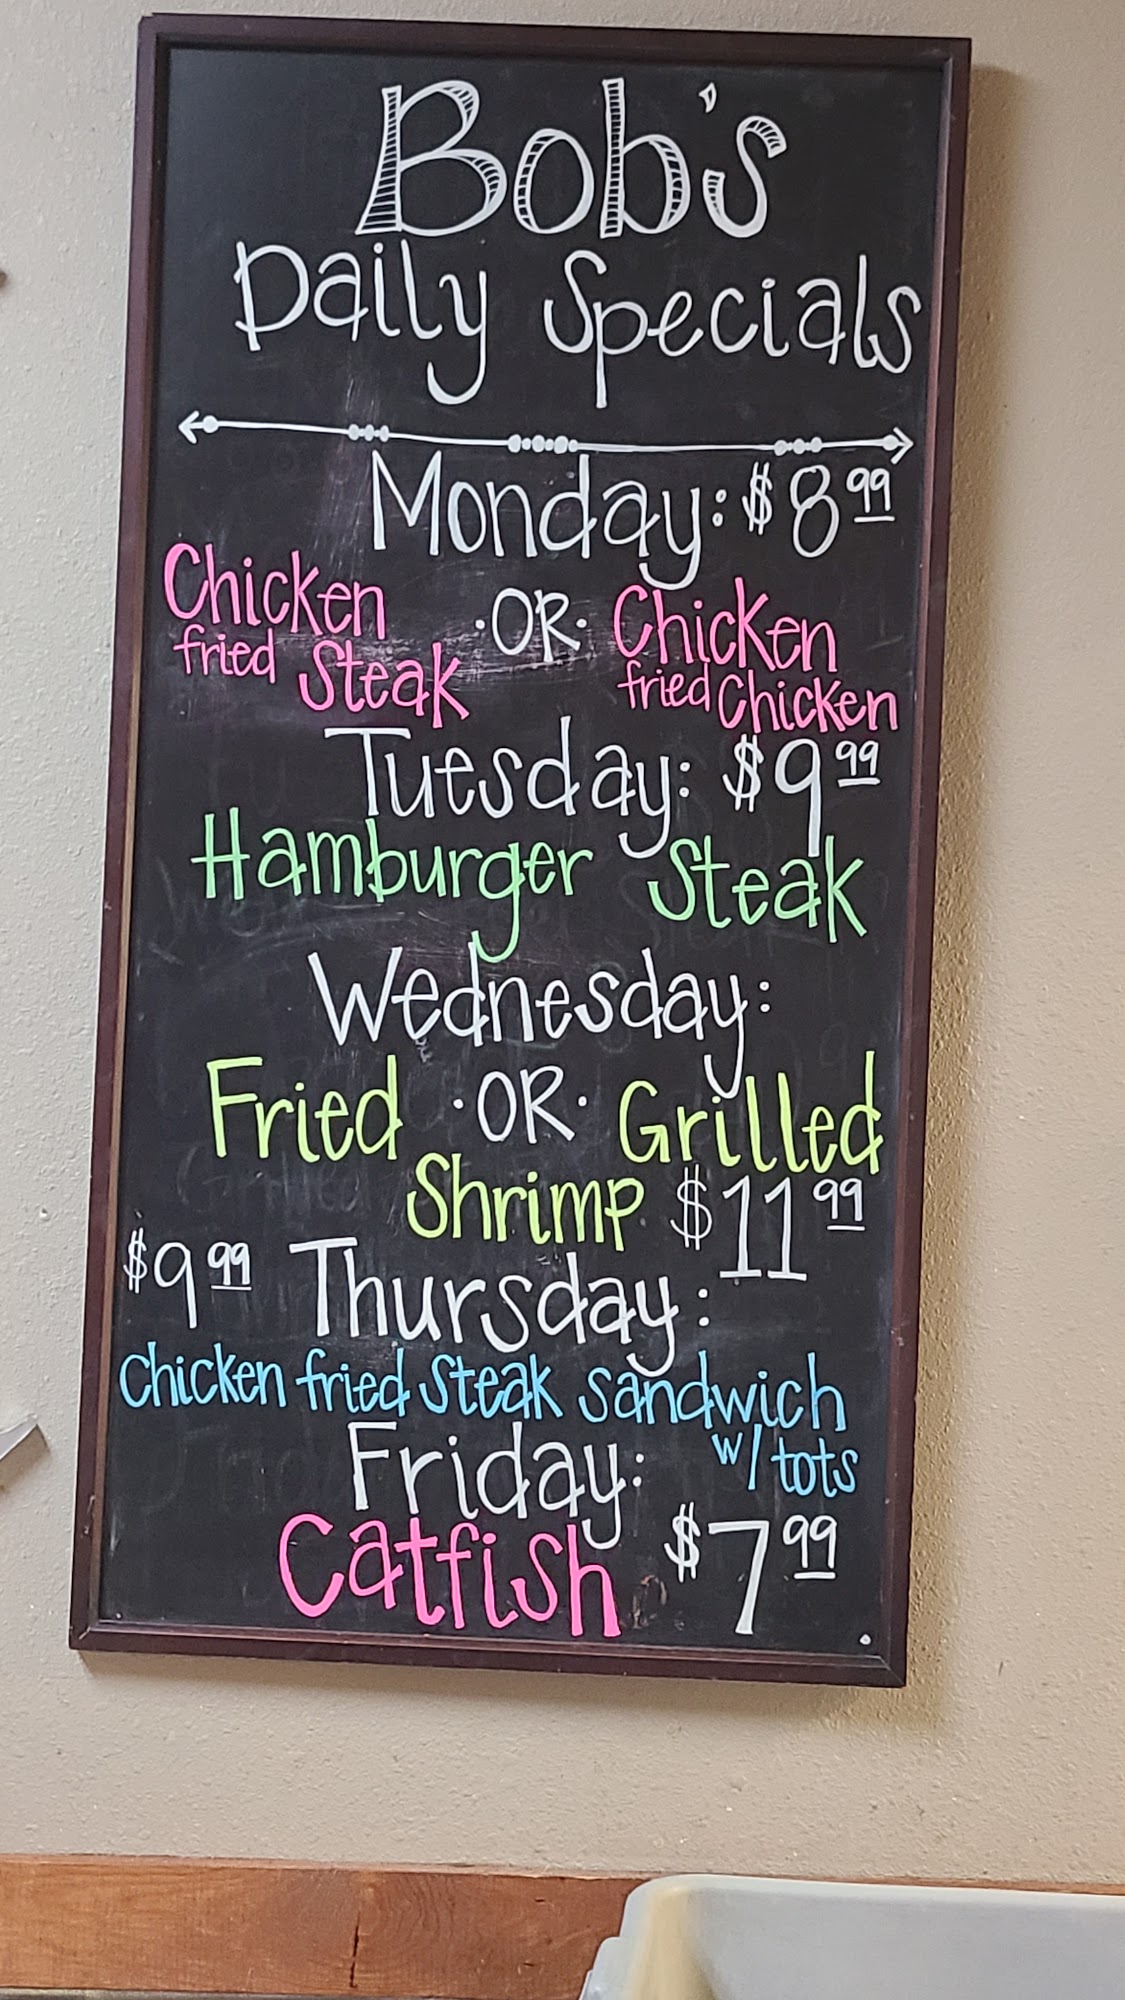 Bob's
Daily Specials
Monday: $8 99
Chicken fried Steak ·OR· Chicken fried Chicken
Tuesday: $9 99
Hamburger Steak
Wednesday:
Fried ·OR· Grilled
Shrimp $11 99
$9 99 Thursday:
Chicken fried Steak Sandwich
w/ tots
Friday:
Catfish $7 99